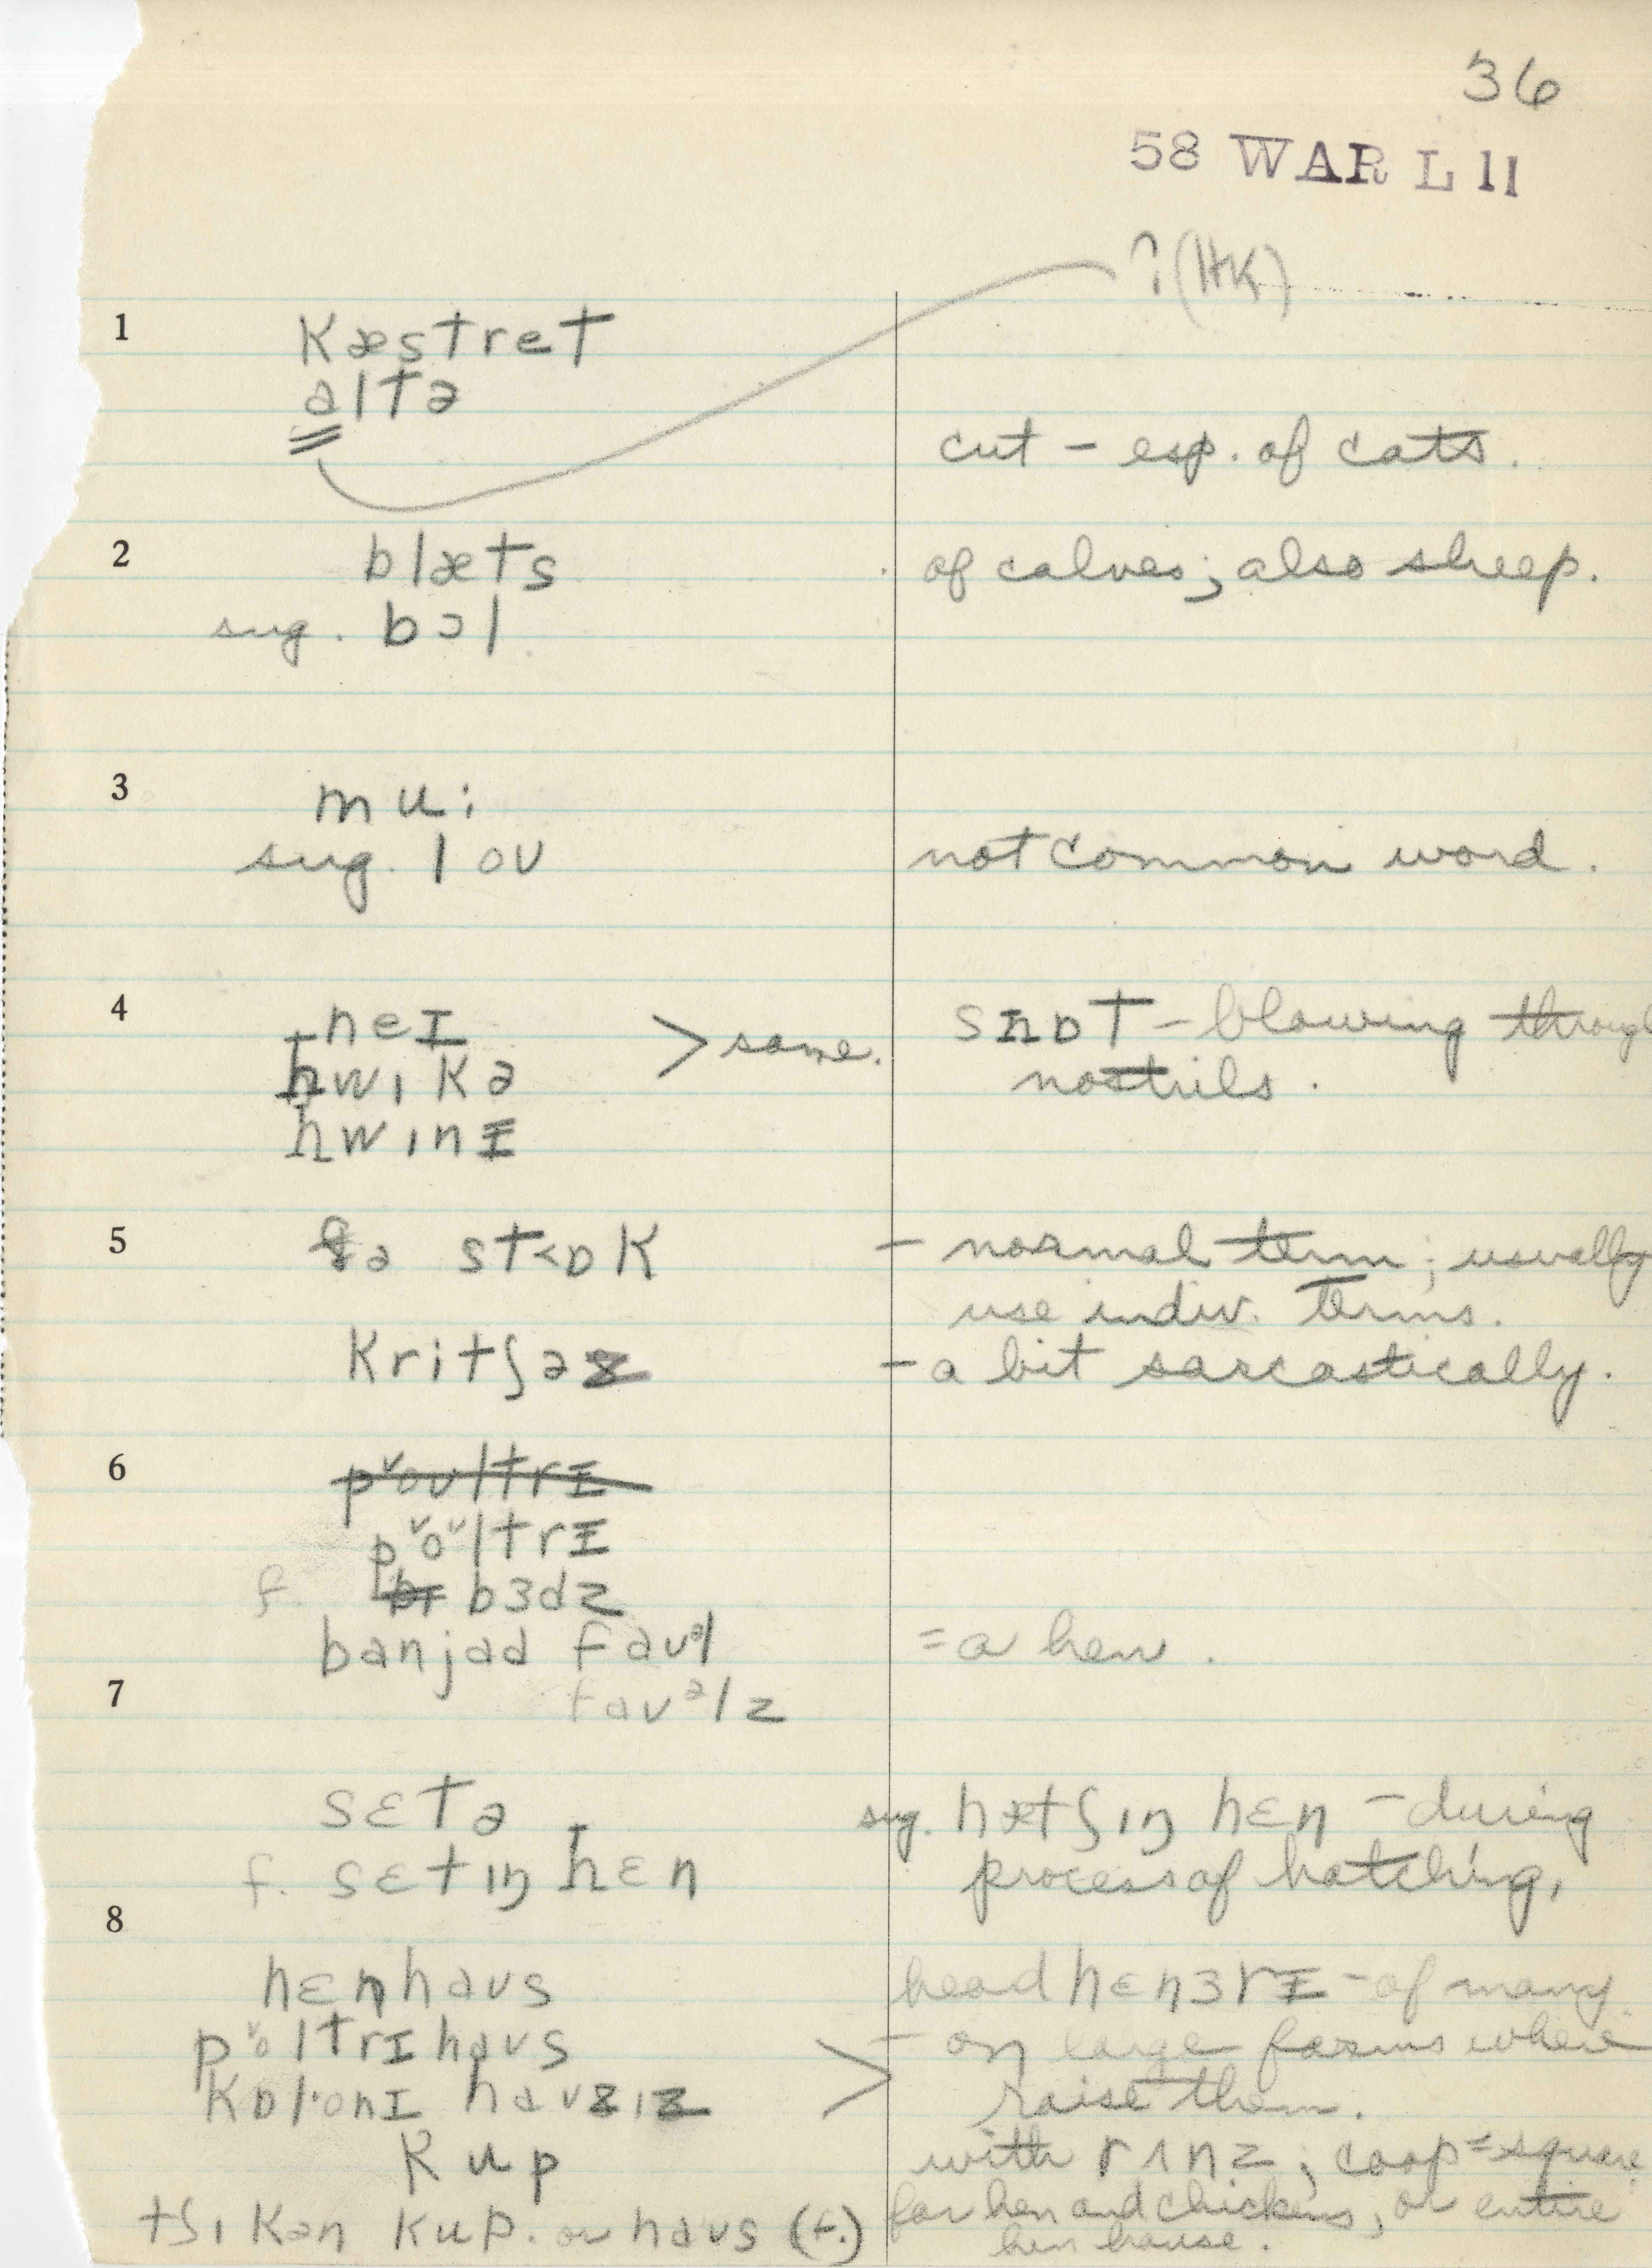 36
58 WAR L 11
? (HK)
1 kæstret
altə
cut – esp. of cats.
2 blæts of calves; also sheep.
sug. bɔl
3 mu:
sug. lou not common word.
4 neɪ snɒt – blowing through
hwɪkə > same. nostrils.
hwɪnɪ
5 ðə st<ɒk – normal term; usually
use indiv. terms.
kritʃəz – a bit sarcastically.
6 p˅oultrɪ
p˅o˅ltrɪ
f. bɜdz
banjad fauəl = a hen.
7 fauəlz
sɛtə sug. hætʃɪŋ hɛn – during
f. sɛtɪŋ hɛn process of hatching,
8
hɛnhaus head hɛnɜrɪ – of many
p˅oltrɪhaus – on large farms where
kɒl·onɪ hauzɪz > raise them.
kup with rʌnz; coop = square
tʃɪkən kup. or haus (f.) for hen and chickens, or entire
hen house.